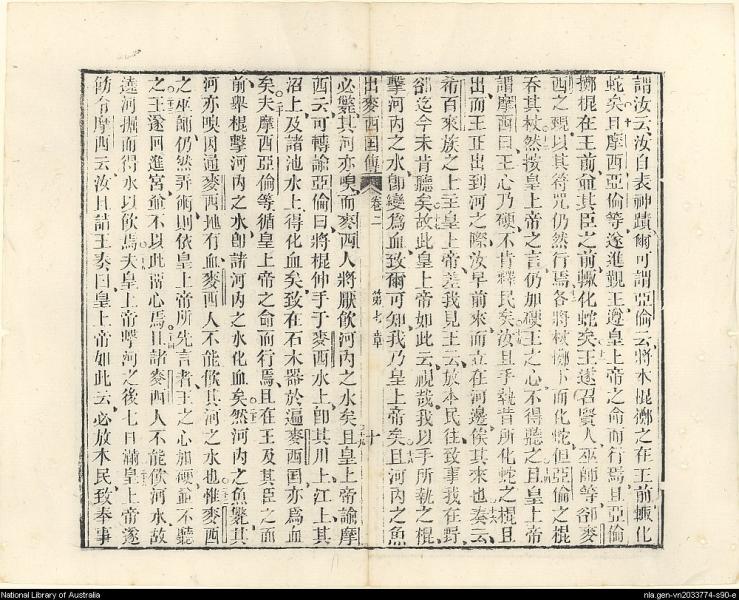 謂汝云汝自表神蹟爾可謂亞倫云將木棍擲之在王前輙化
蛇矣且摩西亞倫等遂進覲王遵皇上帝之命而行焉且亞倫
擲棍在王前並其臣之前輙化蛇矣王遂召賢人巫師等卻麥
西之覡以其符咒仍然行焉各將杖擲下而化蛇但亞倫之棍
吞其杖然按皇上帝之言仍加硬王之心不得聽之且皇上帝
謂摩西曰王心乃硬不肯釋民矣汝且手執昔所化蛇之棍且
出而王正出到河之際汝早前來而立在河邊俟其來也奏云
希百來族之上主皇上帝差我見王云放本民往致事我在野
卻迄今未肯聽矣故此皇上帝如此云視哉我以手所執之棍
擊河內之水卽變爲血致爾可知我乃皇上帝矣且河內之魚
出麥西國傳 卷二 第七章 十
必斃其河亦嗅而麥西人將厭飲河內之水矣且皇上帝諭摩
西云可轉諭亞倫曰將棍伸手于麥西水上卽其川上江上其
沼上及諸池水上得化血矣致在石木器於遍麥西國亦爲血
矣夫摩西亞倫等循皇上帝之命而行焉且在王及其臣之面
前舉棍擊河內之水卽諸河內之水化血矣然河內之魚斃其
河亦嗅因遍麥西地有血麥西人不能飲其河之水也惟麥西
之巫師仍然弄術則依皇上帝所先言者王之心加硬並不聽
之王遂回進宮並不以此留心焉且諸麥西人不能飲河水故
遶河掘而得水以飲焉夫皇上帝擊河之後七日滿皇上帝遂
飭令摩西云汝且詣王奏曰皇上帝如此云必放本民致奉事
National Library of Australia
nla.gen-vn2033774-s90-e